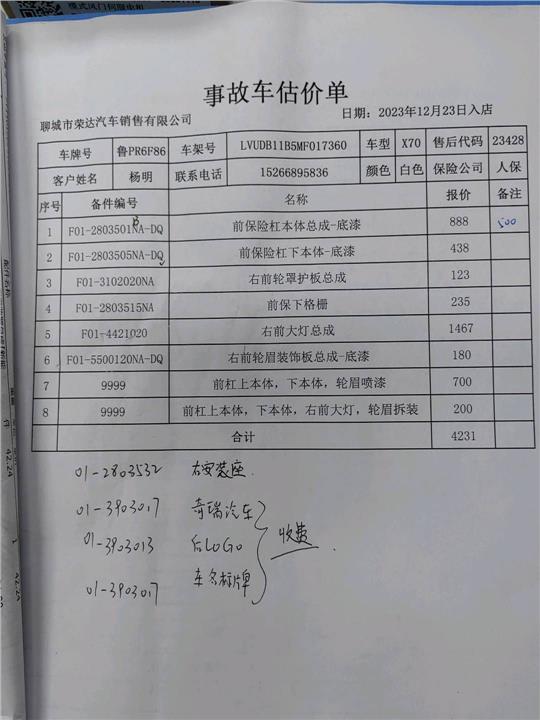 模式风门伺服电机
事故车估价单
聊城市荣达汽车销售有限公司 日期：2023年12月23日入店
车牌号 鲁PR6F86 车架号 LVUDB11B5MF017360 车型 X70 售后代码 23428
客户姓名 杨明 联系电话 15266895836 颜色 白色 保险公司 人保
序号 备件编号 名称 报价 备注
1 F01-2803501NA-DQ 前保险杠本体总成-底漆 888 500
2 F01-2803505NA-DQ 前保险杠下本体-底漆 438
3 F01-3102020NA 右前轮罩护板总成 123
4 F01-2803515NA 前保下格栅 235
5 F01-4421020 右前大灯总成 1467
6 F01-5500120NA-DQ 右前轮眉装饰板总成-底漆 180
7 9999 前杠上本体，下本体，轮眉喷漆 700
8 9999 前杠上本体，下本体，右前大灯，轮眉拆装 200
合计 4231
01-2803532 右安装座
01-3903017 奇瑞汽车
01-3903013 后LOGO 收费
01-3903017 车名标牌
42.24